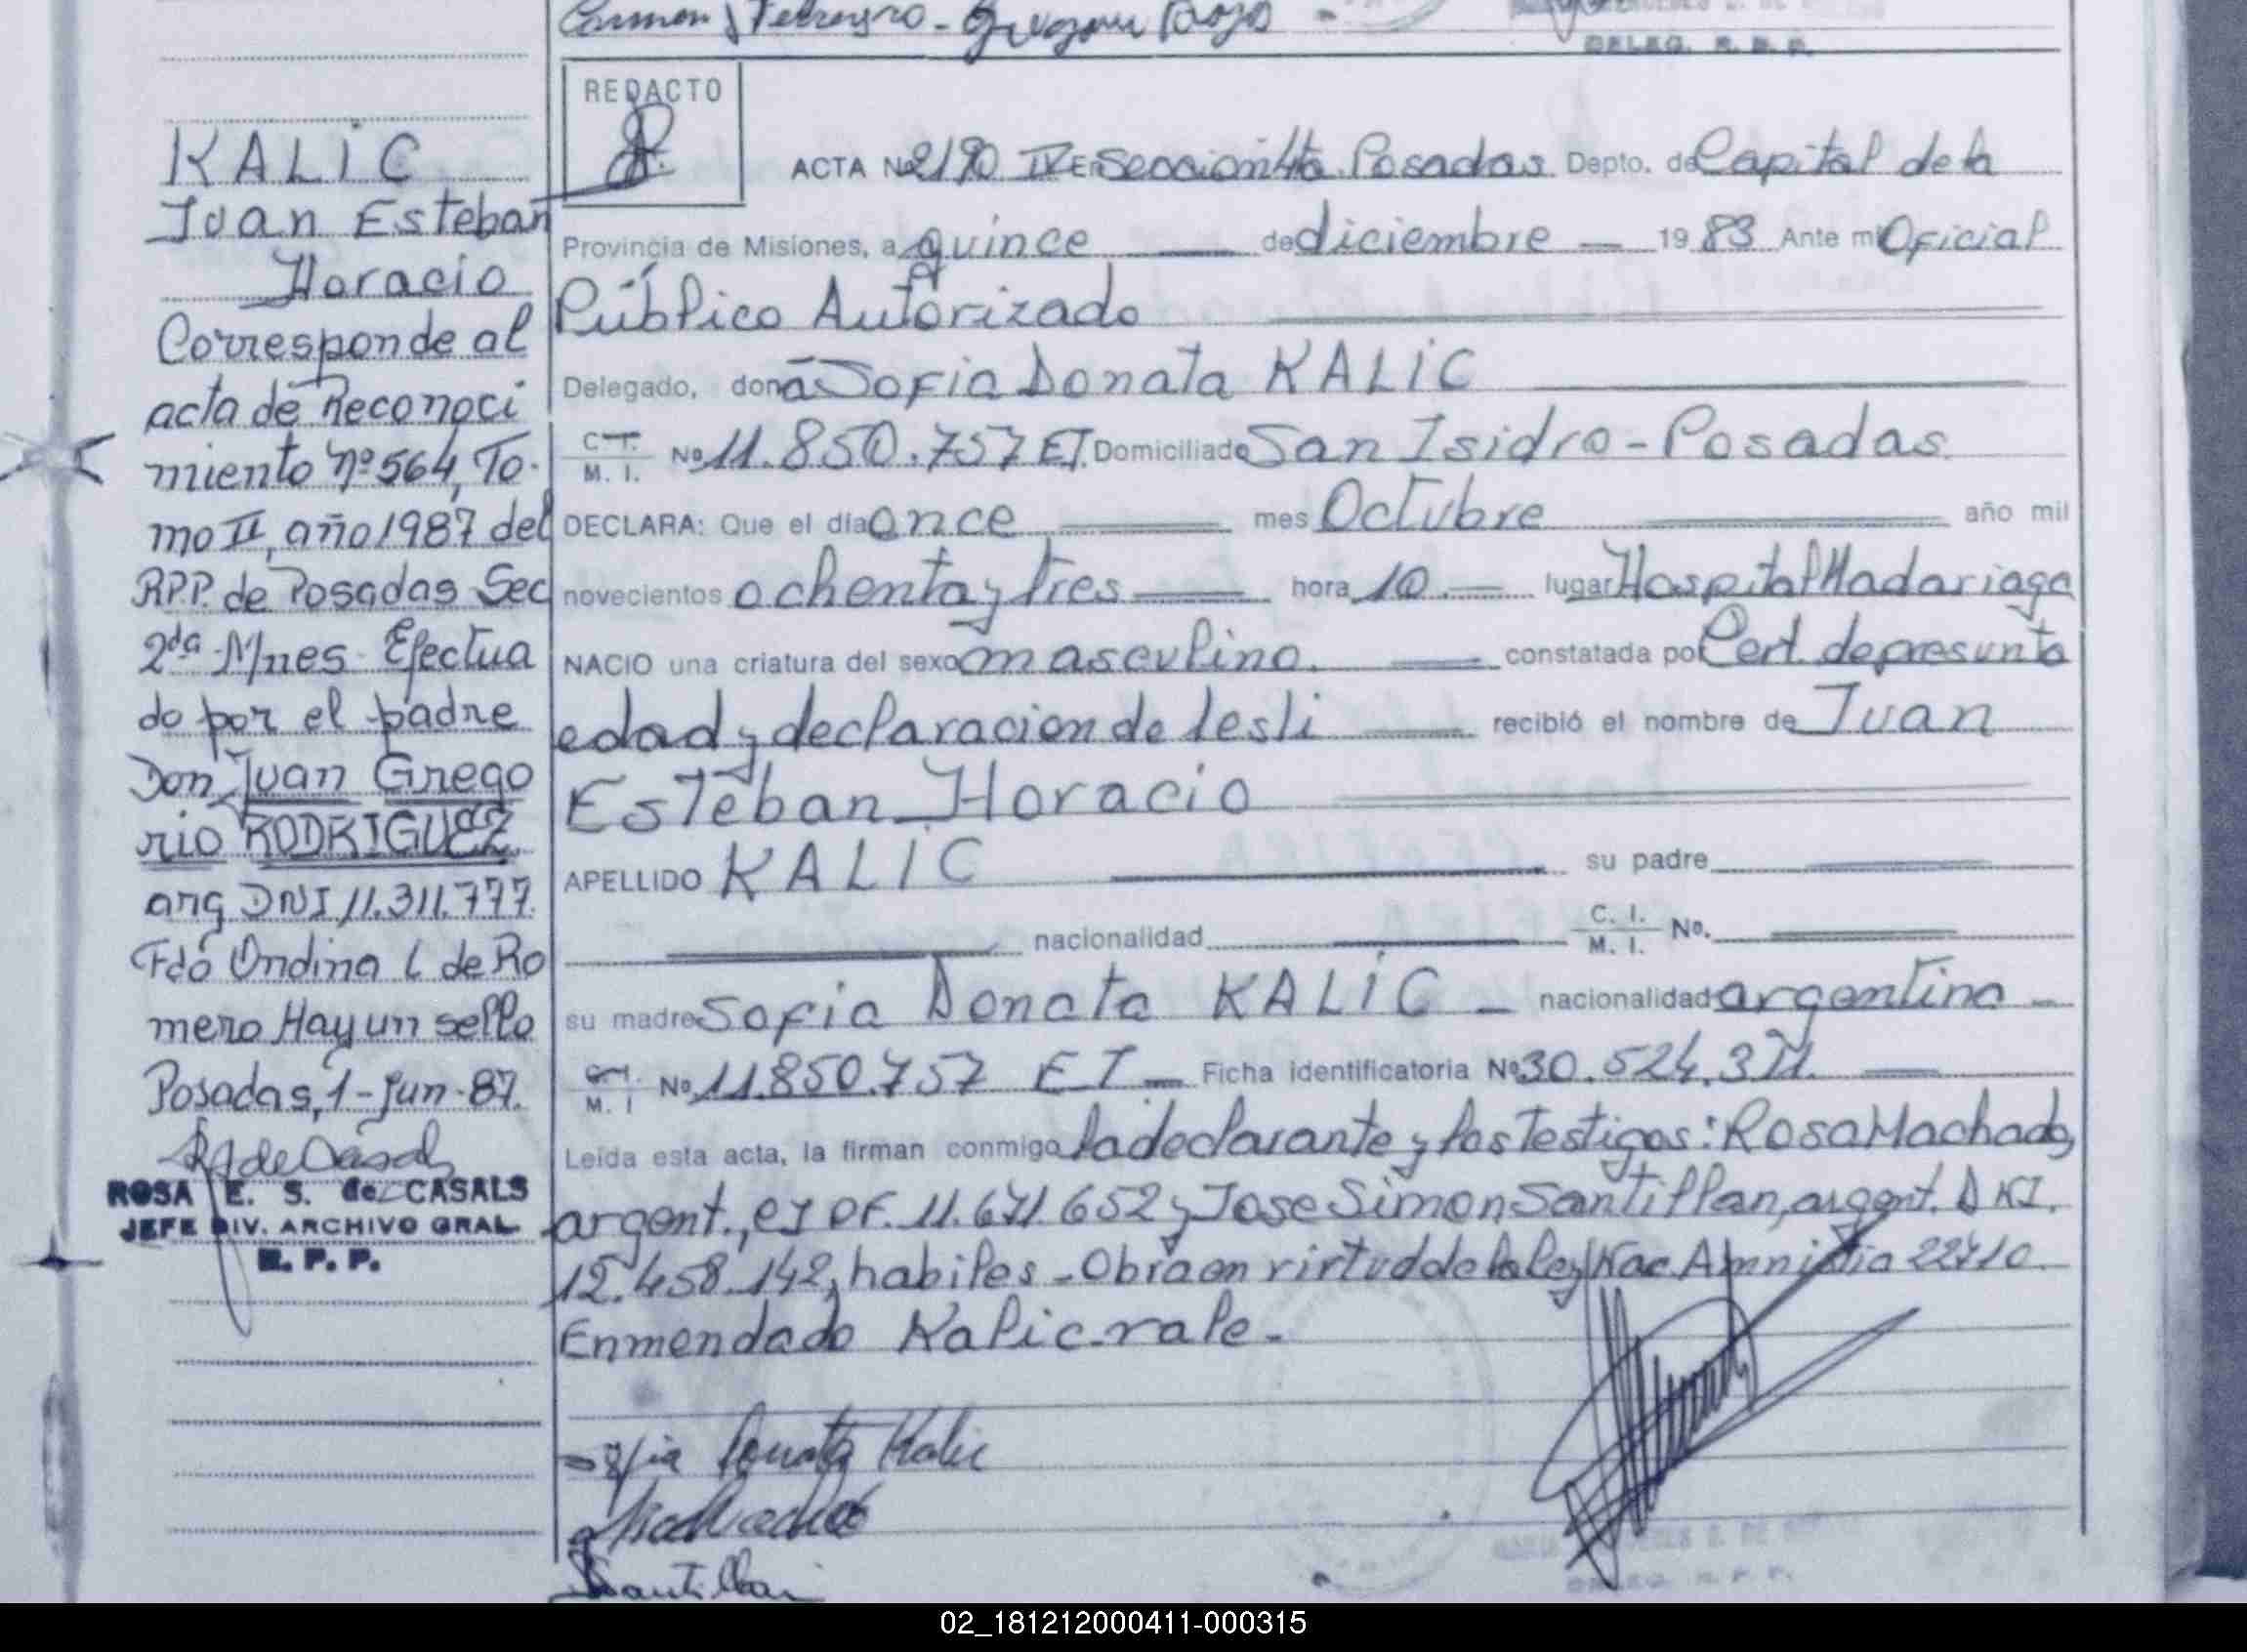 Carmen
REDACTO
ACTA Nº 2190 IV En Sección 4ta Posadas Depto. de Capital de la
Provincia de Misiones, a quince de diciembre 1983 Ante mi Oficial
Público Autorizado
Delegado, doña Sofia Donata KALIC
C. I. M. I. Nº 11.850.757 ET. Domiciliado San Isidro - Posadas
DECLARA: Que el día once mes Octubre año mil
novecientos ochenta y tres hora 10.- lugar Hospital Madariaga
NACIO una criatura del sexo masculino. constatada por Cert. de presunta
edad y declaracion de testi recibió el nombre de Juan
Esteban Horacio
APELLIDO KALIC su padre
nacionalidad C. I. M. I. Nº.
su madre Sofia Donata KALIC - nacionalidad argentina -
M. I Nº 11.850.757 ET - Ficha identificatoria Nº 30.524.371.
Leída esta acta, la firman conmigo la declarante y los Testigos: Rosa Machado,
argent., ej DF. 11.671.652 y Jose Simon Santillan, argent. DNI.
12.458.142, habiles - Obra en virtud de la Ley Nac Amnistia 22410.
Enmendado Kalic-vale-
Sofia Donata Kalic
Santillan
KALIC
Juan Esteban
Horacio
Corresponde al
acta de Reconoci
miento nº 564, To-
mo II, año 1987 del
RPP. de Posadas Sec
2da Mnes Efectua
do por el padre
Don Juan Grego
rio RODRIGUEZ
arg DNI 11.311.777.
Fdo Ondina L de Ro
mero Hay un sello
Posadas, 1-Jun-87.
ROSA E. S. de CASALS
JEFE DIV. ARCHIVO GRAL.
R. P. P.
DELEG. R. P. P.
02_181212000411-000315